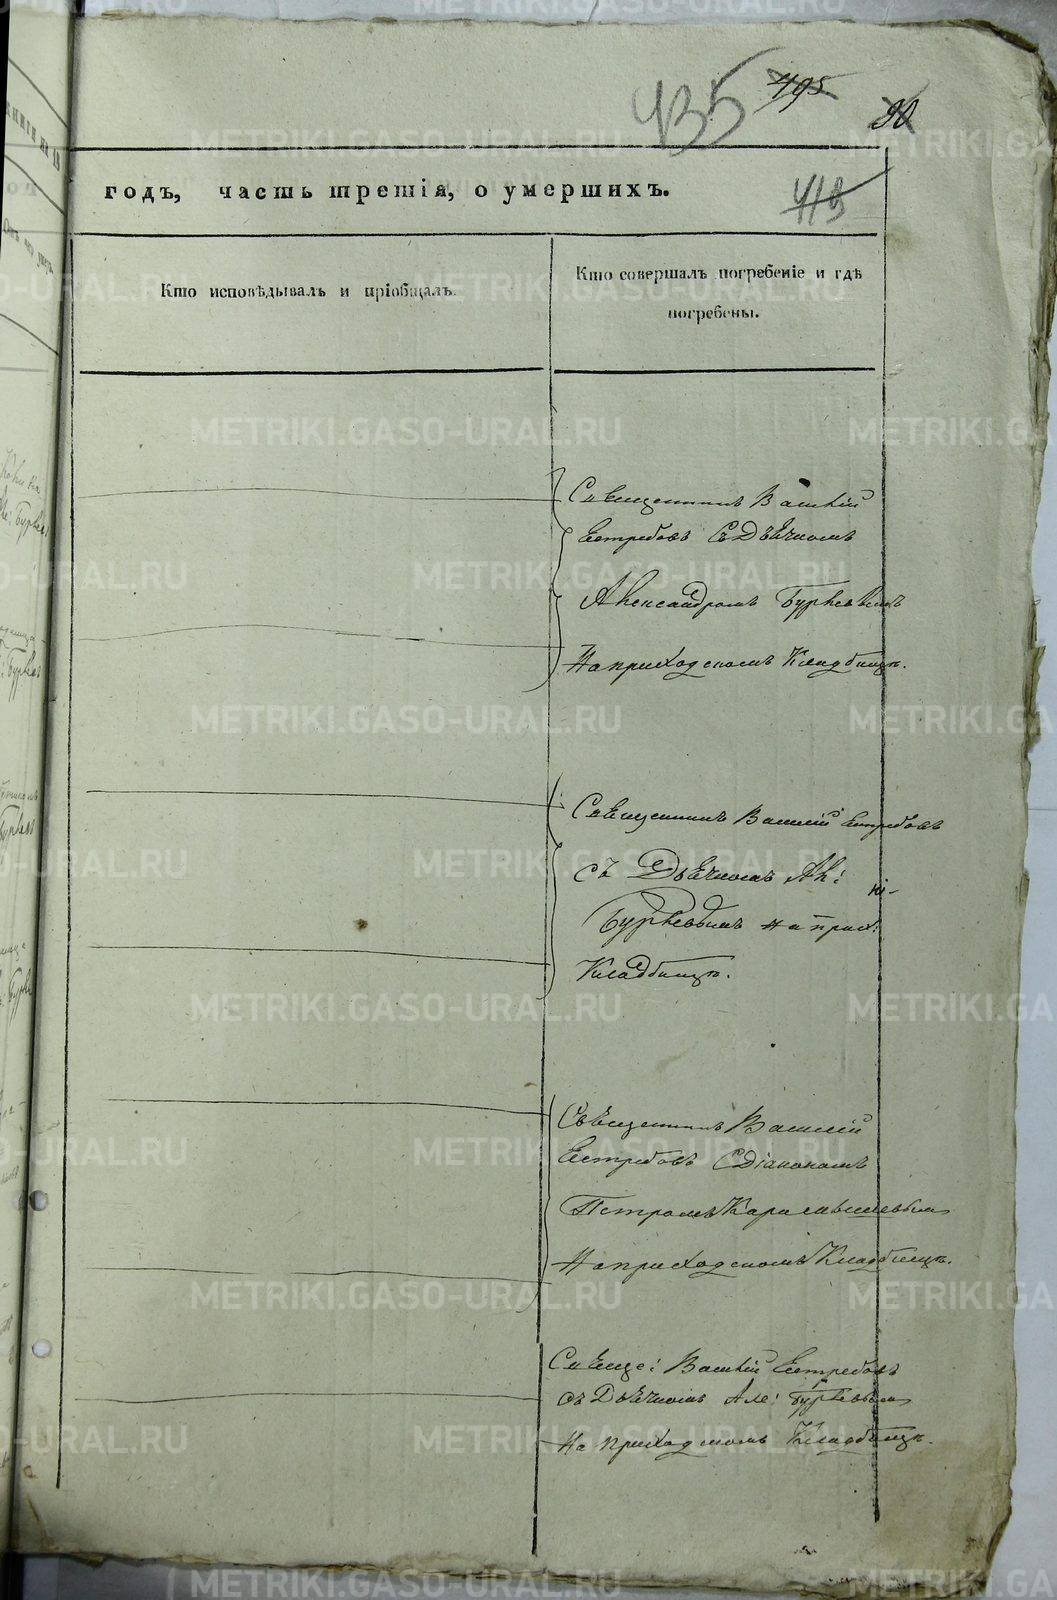 435 495
90
годъ, часть третія, о умершихъ.
413
Кто исповѣдывалъ и пріобщалъ.
Кто совершалъ погребеніе и гдѣ
погребены.
Священникъ Василій
Ястребовъ съ Дьячкомъ
Александромъ
На приходскомъ Кладбищѣ.
Священникъ Василій Ястребовъ
съ Дьячкомъ Ал:
на прих:
Кладбищѣ.
Священникъ Василій
Ястребовъ с Діакономъ
Петромъ
На приходскомъ Кладбищѣ.
Свяще: Василій Ястребовъ
съ Дьячкомъ Але:
На приходскомъ Кладбищѣ.
METRIKI.GASO-URAL.RU